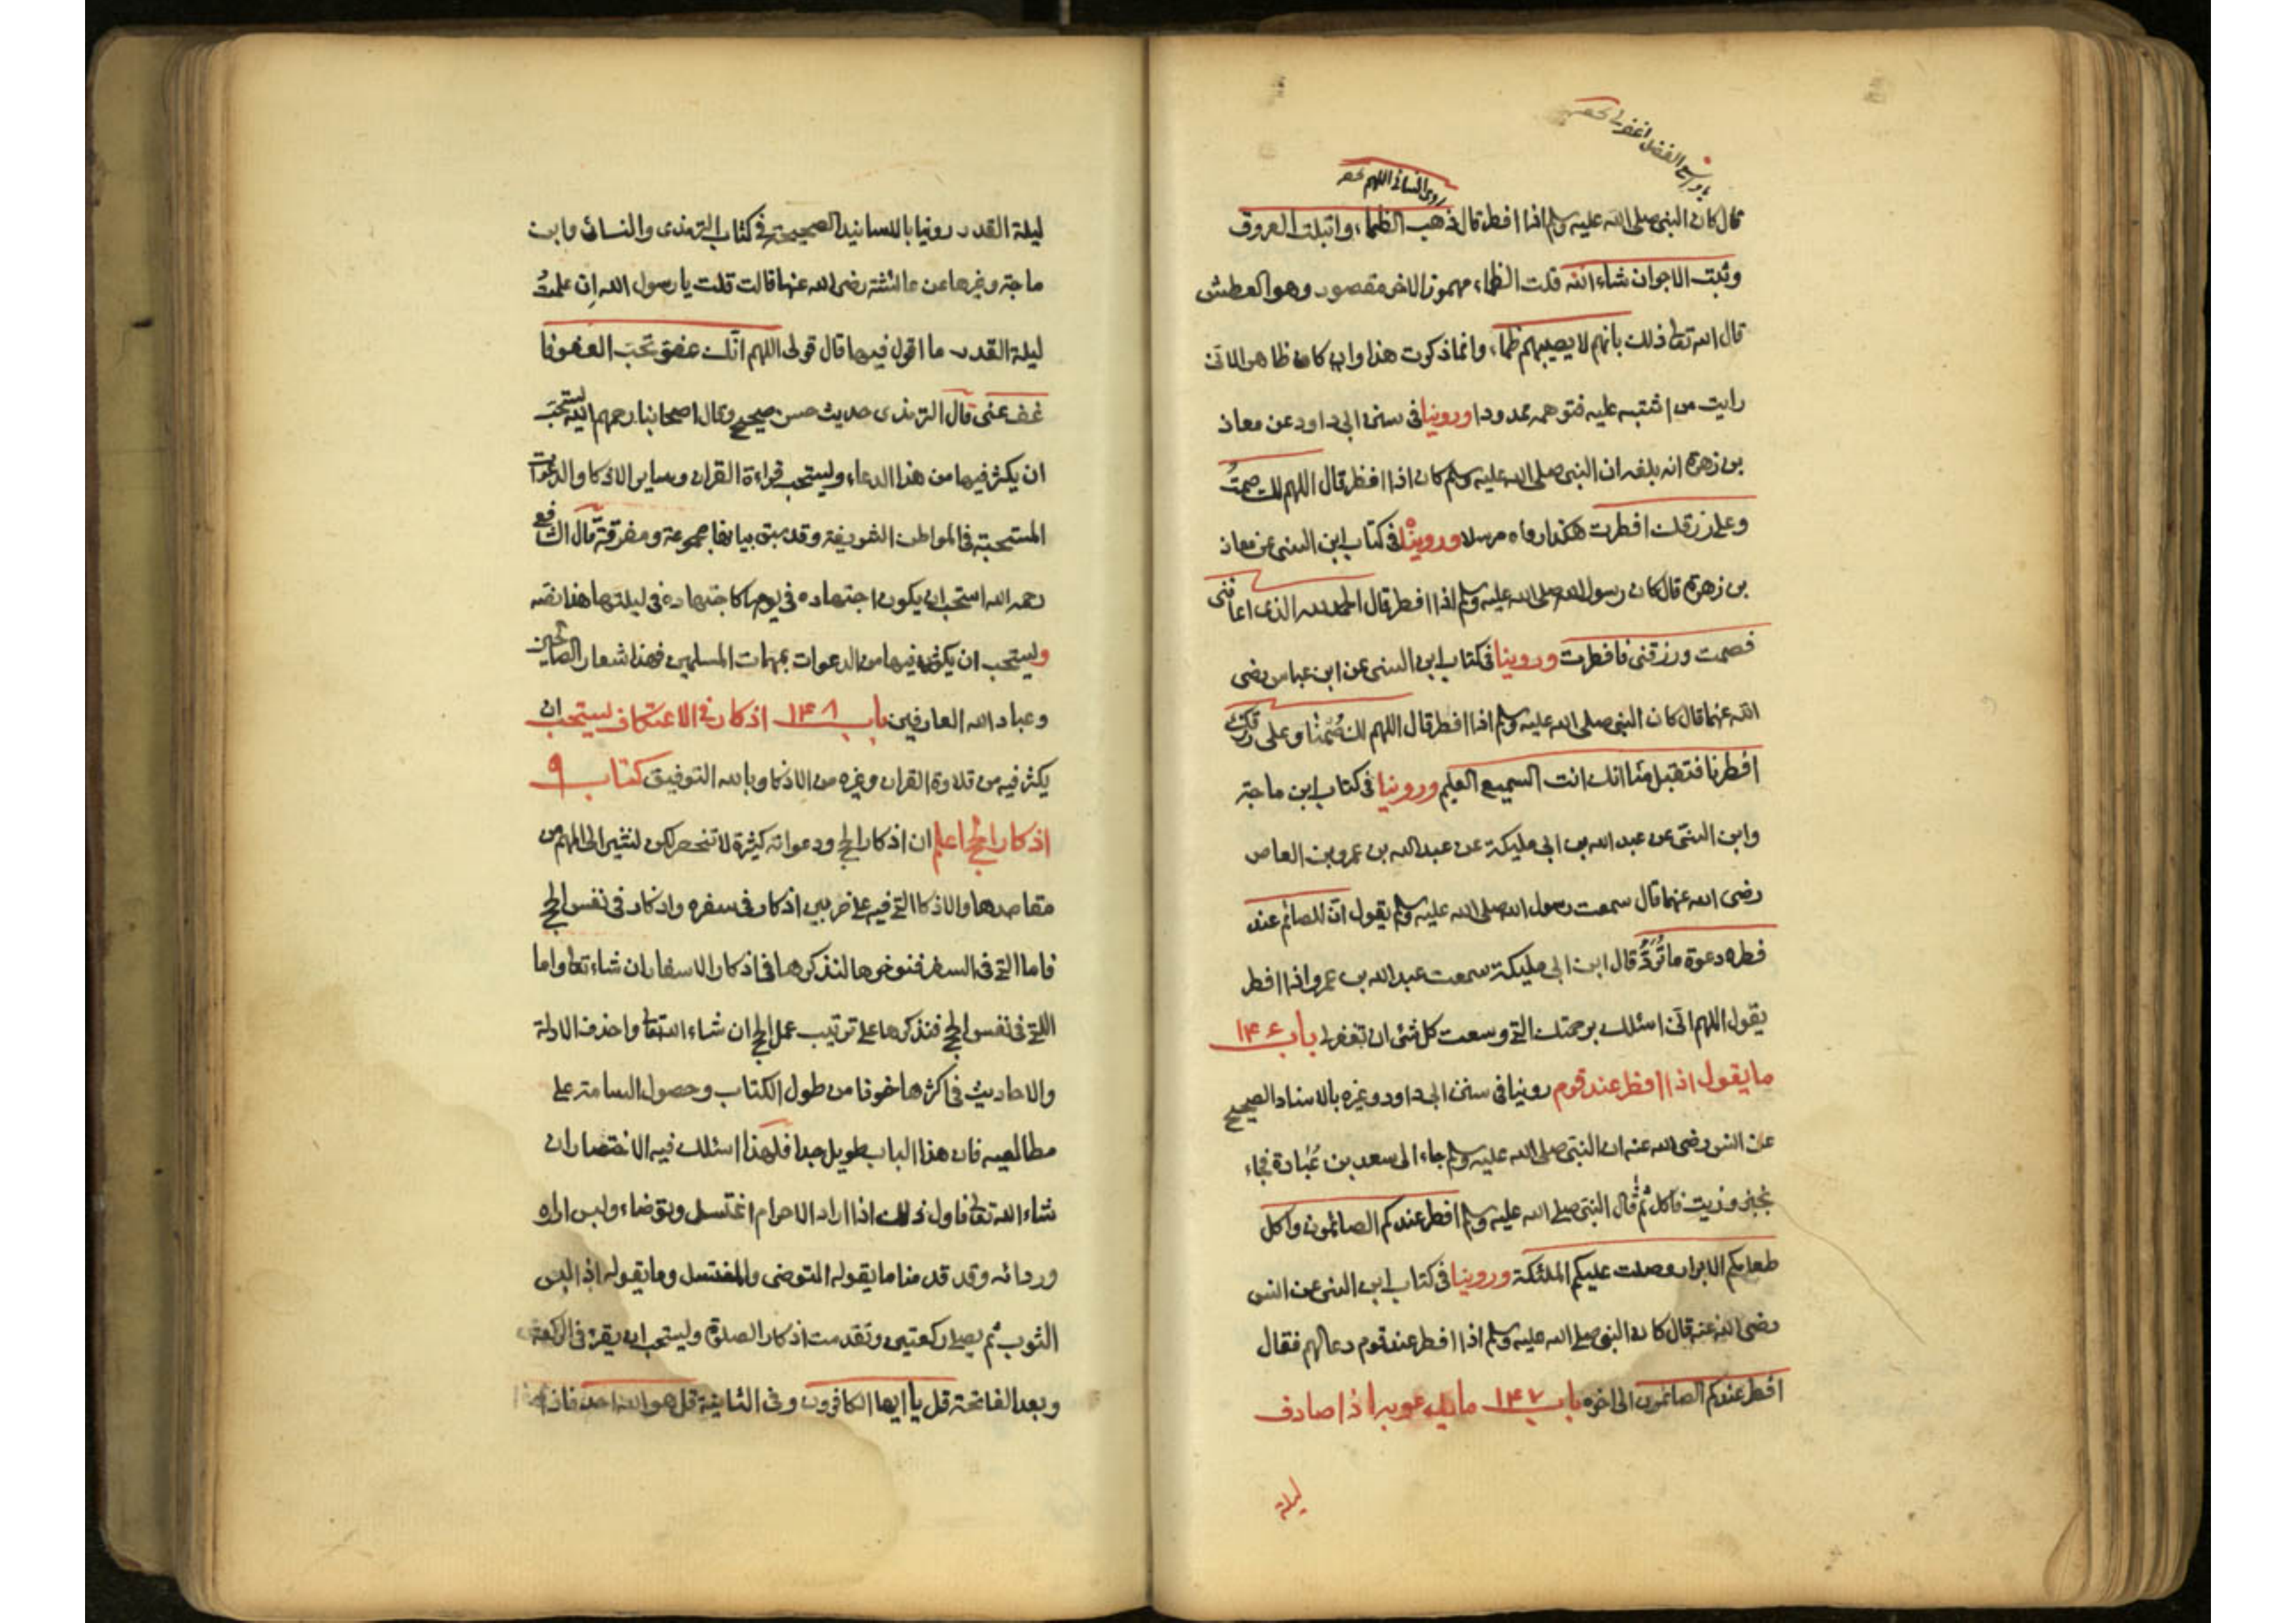 يا واسع الفضل اغفر لي
روى النسائي اللهم
قال كان النبي صلى الله عليه وسلم اذا افطر قال ذهب الظماء وابتلت العروق
وثبت الاجر ان شاء الله قلت الظماء مهموز الاخر مقصور وهو العطش
قال الله تعالى ذلك بانهم لا يصيبهم ظماء وانما ذكرت هذا وان كان ظاهرا لاني
رايت من اشتبه عليه فتوهمه ممدودا وروينا في سنن ابي داود عن معاذ
بن زهرة انه بلغه ان النبي صلى الله عليه وسلم كان اذا افطر قال اللهم لك صمتُ
وعلى رزقك افطرت هكذا رواه مرسلا وروينا في كتاب ابن السني عن معاذ
بن زهرة قال كان رسول الله صلى الله عليه وسلم اذا افطر قال الحمد لله الذي اعانني
فصمت ورزقني فافطرت وروينا في كتاب ابن السني عن ابن عباس رضي
الله عنهما قال كان النبي صلى الله عليه وسلم اذا افطر قال اللهم لك صُمْنا وعلى رزقك
افطرنا فتقبل منا انك انت السميع العليم وروينا في كتاب ابن ماجة
وابن السني عن عبد الله بن ابي مليكة عن عبد الله بن عمرو بن العاص
رضي الله عنهما قال سمعت رسول الله صلى الله عليه وسلم يقول ان للصائم عند
فطره دعوة ما تُرَدُّ قال ابن ابي مليكة سمعت عبد الله بن عمرو اذا افطر
يقول اللهم اني اسئلك برحمتك التي وسعت كل شئ ان تغفر لي باب ۱۴۶
ما يقول اذا افطر عند قوم روينا في سنن ابي داود وغيره بالاسناد الصحيح
عن انس رضي الله عنه ان النبي صلى الله عليه وسلم جاء الى سعد بن عُبادة فجاء
بخبز وزيت فاكل ثم قال النبي صلى الله عليه وسلم افطر عندكم الصائمون واكل
طعامكم الابرار وصلت عليكم الملئكة وروينا في كتاب ابن السني عن انس
رضي الله عنه قال كان النبي صلى الله عليه وسلم اذا افطر عند قوم دعا لهم فقال
افطر عندكم الصائمون الى اخره باب ۱۴۷ ما يدعو به اذا صادف
ليلة
ليلة القدر روينا بالاسانيد الصحيحة في كتاب الترمذي والنسائي وابن
ماجة وغيرها عن عائشة رضي الله عنها قالت قلت يا رسول الله اِن علمتُ
ليلة القدر ما اقول فيها قال قولي اللهم انّك عفوّ تحبّ العفو فا
عف عني قال الترمذي حديث حسن صحيح وقال اصحابنا رحمهم الله يستحبّ
ان يكثر فيها من هذا الدعاء ويستحب قراءة القران وساير الاذكار والدعوات
المستحبة في المواطن الشريفة وقد سبق بيانها مجموعة ومفرقة قال الشافعي
رحمه الله استحب ان يكون اجتهاده في يومها كاجتهاده في ليلتها هذا نصه
ويستحب ان يكثر فيها من الدعوات بمهمات المسلمين فهذا شعار الصالحين
وعباد الله العارفين باب ۱۴۸ اذكار في الاعتكاف يستحب ان
يكثر فيه من تلاوة القران وغيره من الاذكار وبالله التوفيق كتاب ۹
اذكار الحج اعلم ان اذكار الحج ودعواته كثيرة لا تنحصر لكن نشير الى المهم من
مقاصدها والاذكار التي فيه على ضربين اذكار في سفره واذكار في نفس الحج
فاما التي في السفر فنؤخرها لنذكرها في اذكار الاسفار ان شاء تعالى واما
اللتي في نفس الحج فنذكرها على ترتيب عمل الحج ان شاء الله تعالى واحذف الادلة
والاحاديث في اكثرها خوفا من طول الكتاب وحصول السامة على
مطالعيه فان هذا الباب طويل جدا فلهذا اسلك فيه الاختصار ان
شاء الله تعالى فاول ذلك اذا اراد الاحرام اغتسل وتوضاء ولبس ازاره
وردائه وقد قدمنا ما يقوله المتوضي والمغتسل وما يقوله اذا لبس
الثوب ثم يصلي ركعتين وتقدمت اذكار الصلوة ويستحب ان يقرء في الركعة
وبعد الفاتحة قل يا ايها الكافرون وفي الثانية قل هو الله احد فاذا